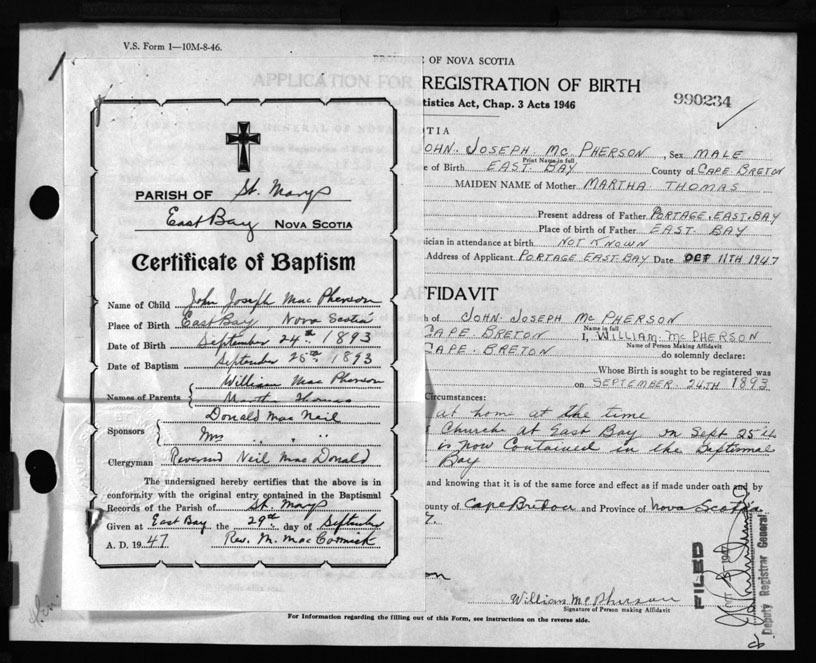 V.S. Form 1—10M-8-46.
OF NOVA SCOTIA
APPLICATION FOR REGISTRATION OF BIRTH
tistics Act, Chap. 3 Acts 1946
990234
PARISH OF St. Marys
East Bay NOVA SCOTIA
Certificate of Baptism
Name of Child John Joseph Mac Pherson
Place of Birth East Bay, Nova Scotia
Date of Birth September 24th 1893
Date of Baptism September 25th 1893
Names of Parents William Mac Pherson
Martha Thomas
Sponsors Donald Mac Neil
Mrs " " "
Clergyman Reverend Neil Mac Donald
The undersigned hereby certifies that the above is in
conformity with the original entry contained in the Baptismal
Records of the Parish of St. Marys
Given at East Bay the 29th day of September
A. D. 1947 Rev. M. MacCormick
OTIA
OHN JOSEPH MC PHERSON, Sex MALE
Print Name in full
e of Birth EAST BAY County of CAPE BRETON
MAIDEN NAME of Mother MARTHA THOMAS
Present address of Father PORTAGE, EAST, BAY
Place of birth of Father EAST BAY
sician in attendance at birth NOT KNOWN
Address of Applicant PORTAGE EAST BAY Date OCT 11TH 1947
FFIDAVIT
h of JOHN JOSEPH MC PHERSON
Name in full
CAPE BRETON I, WILLIAM MC PHERSON
Name of Person Making Affidavit
CAPE BRETON do solemnly declare:
Whose Birth is sought to be registered was
on SEPTEMBER 24TH 1893
Circumstances:
at home at the time
Church at East Bay on Sept 25th
is now Contained in the Baptismal
Bay
and knowing that it is of the same force and effect as if made under oath and by
ounty of Cape Breton and Province of Nova Scotia
William McPherson
Signature of Person making Affidavit
FILED
Deputy Registrar General
For Information regarding the filling out of this Form, see instructions on the reverse side.